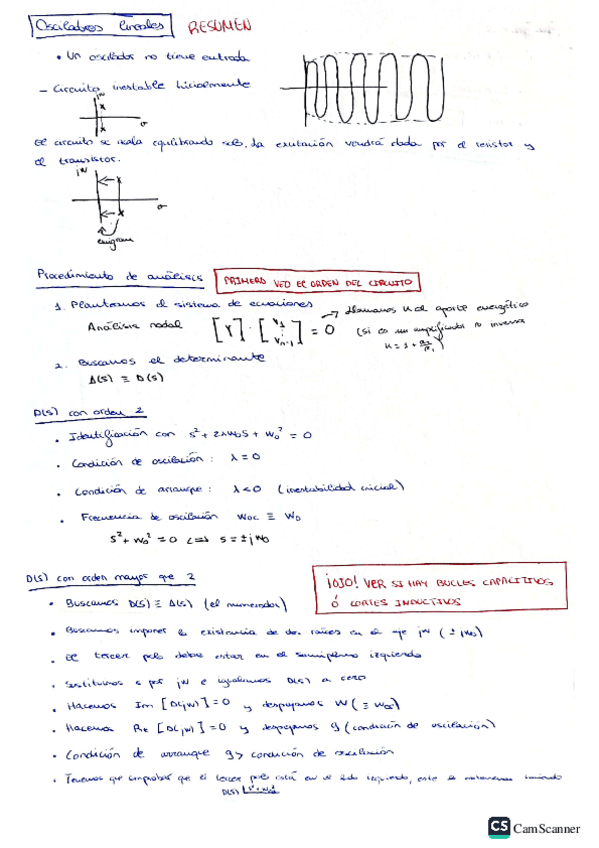 Osciladores lineales RESUMEN
• Un oscilador no tiene entrada
- Circuito inestable inicialmente
jw
σ
El circuito se irá equilibrando solo. La excitación vendrá dada por el resistor y
el transistor.
jw
σ
Procedimiento de análisis PRIMERO VEO EL ORDEN DEL CIRCUITO
1. Planteamos el sistema de ecuaciones
Llamamos K al aporte energético
Análisis nodal [Y] · [V1 ⋮ Vn-1] = 0 (si es un amplificador no inversor
K = 1 + R2/R1)
2. Buscamos el determinante
Δ(s) ≡ D(s)
D(s) con orden 2
• Identificación con s² + 2λw0s + w0² = 0
• Condición de oscilación: λ = 0
• Condición de arranque: λ<0 (inestabilidad inicial)
• Frecuencia de oscilación wosc ≡ w0
s² + w0² = 0 <=> s = ±jw0
D(s) con orden mayor que 2
¡OJO! VER SI HAY BUCLES CAPACITIVOS
Ó CORTES INDUCTIVOS
• Buscamos D(s) ≡ Δ(s) (el numerador)
• Buscamos imponer la existencia de dos raíces en el eje jw (±jw0)
• El tercer polo debe estar en el semiplano izquierdo
• Sustituimos s por jw e igualamos D(s) a cero
• Hacemos Im [D(jw)] = 0 y despejamos w (≡ wosc)
• Hacemos Re [D(jw)] = 0 y despejamos g (condición de oscilación)
• Condición de arranque g > condición de oscilación
• Tenemos que comprobar que el tercer polo está en el lado izquierdo, esto lo
D(s) s²+w0²
CS CamScanner